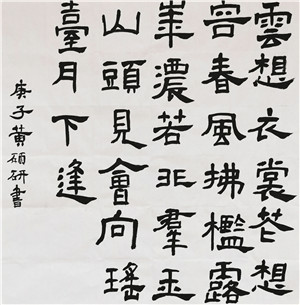 雲想衣裳花想
容春風拂檻露
華濃若非羣玉
山頭見會向瑤
臺月下逢
庚子黃碩研書